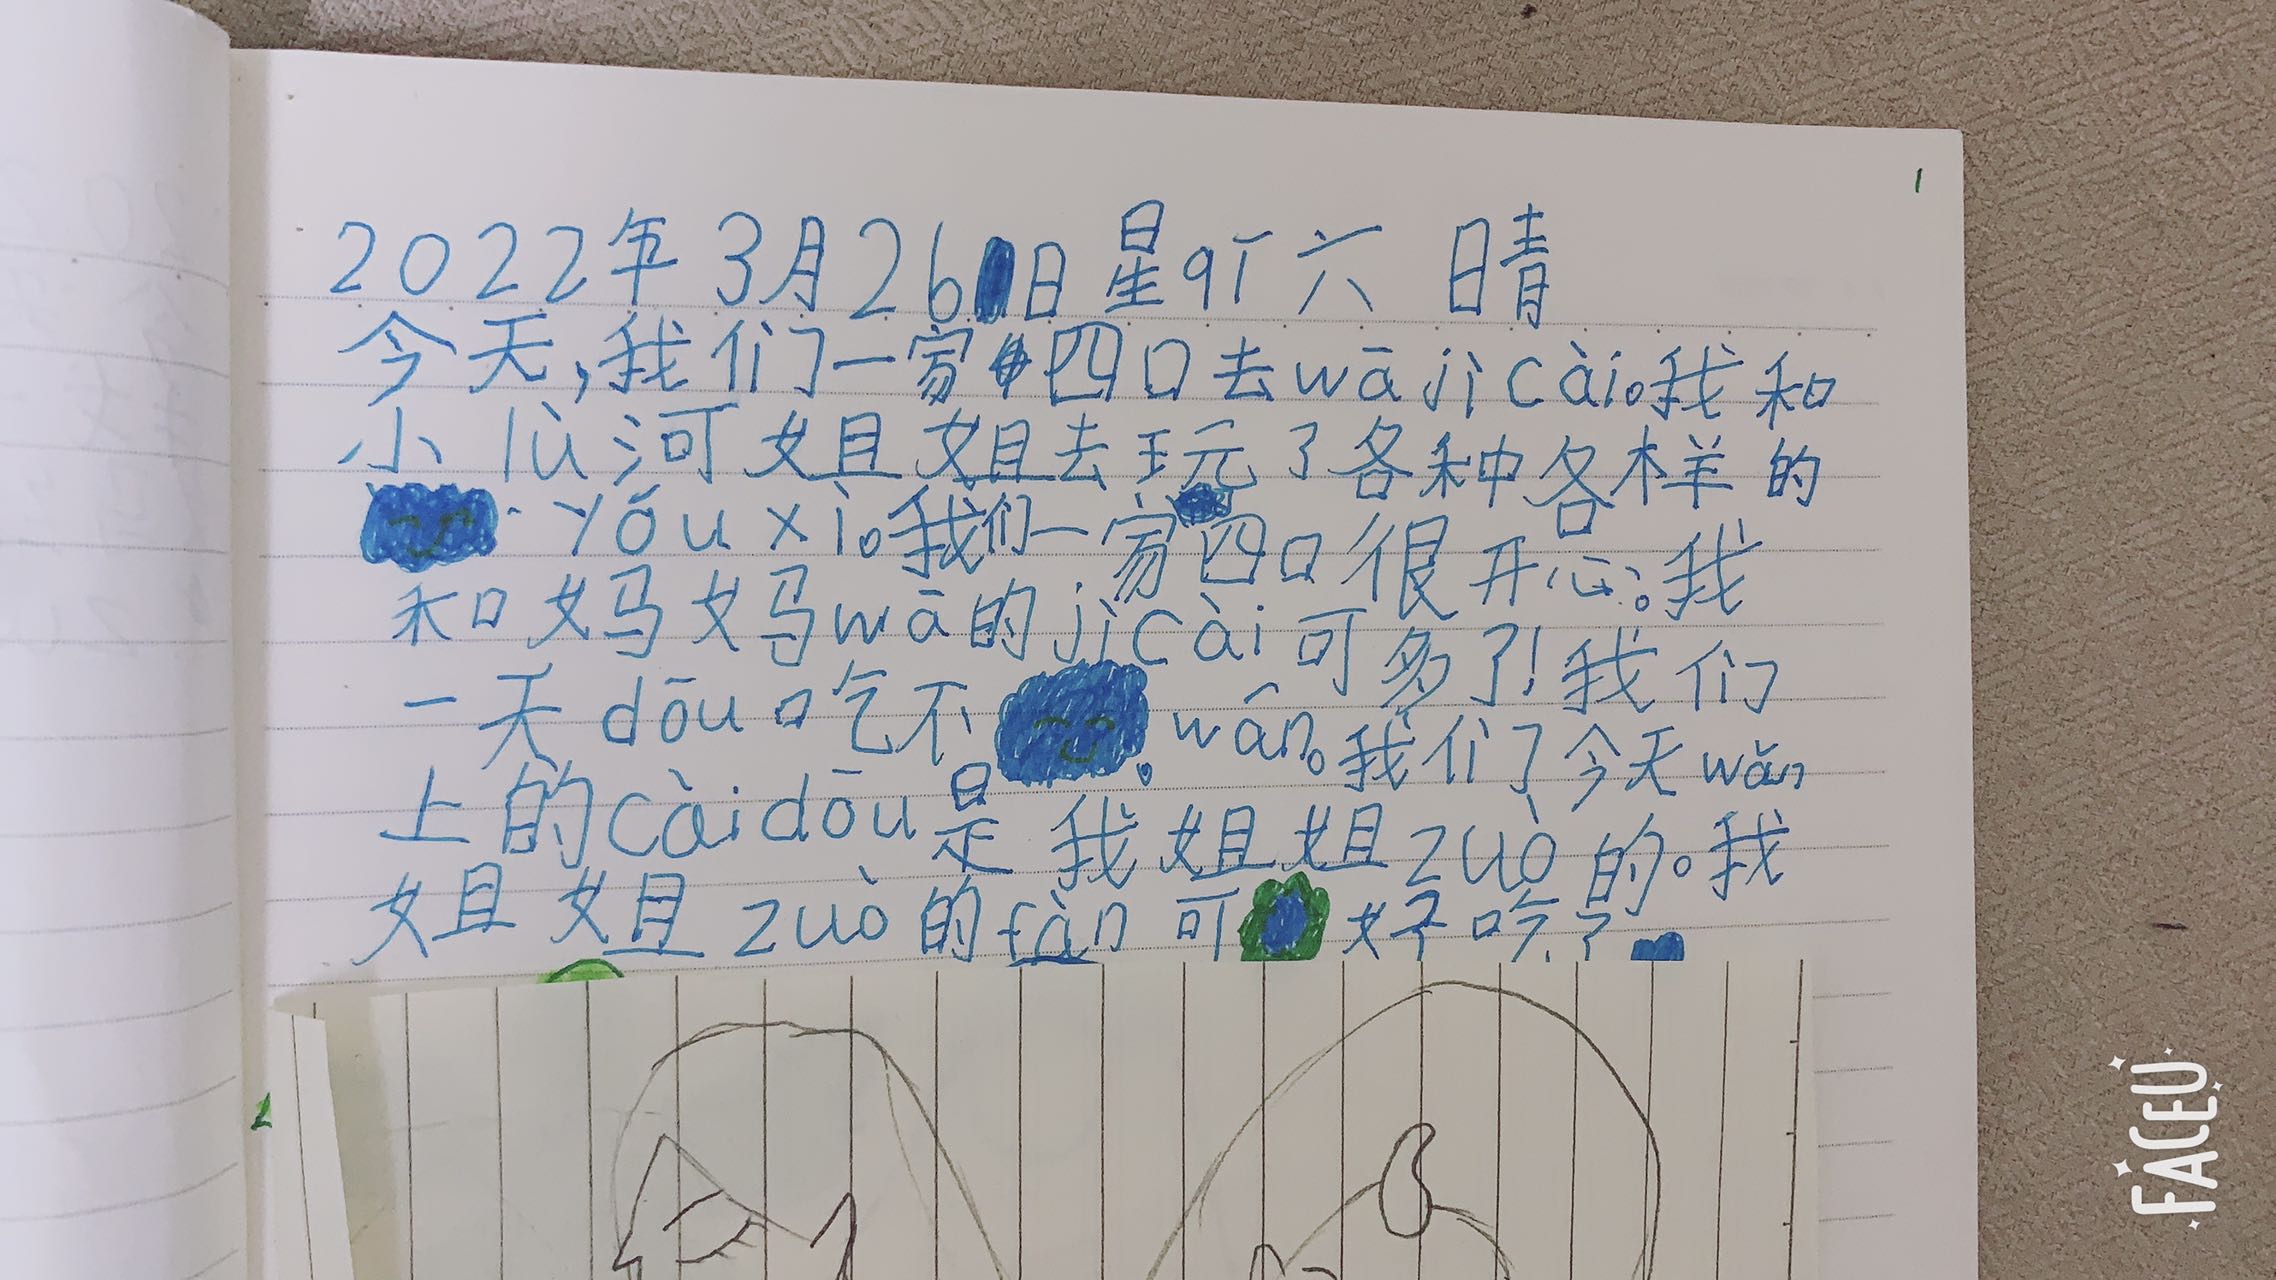 1
2022年3月26日星qī六 晴
今天,我们一家四口去wā jì cài。我和
小lù河姐姐去玩了各种各样的
yǒu xì。我们一家四口很开心。我
和妈妈wā的jì cài可多了!我们
一天dōu吃不wán。我们了今天wǎn
上的cài dōu是我姐姐zuò的。我
姐姐zuò的fàn可好吃了
FACEU